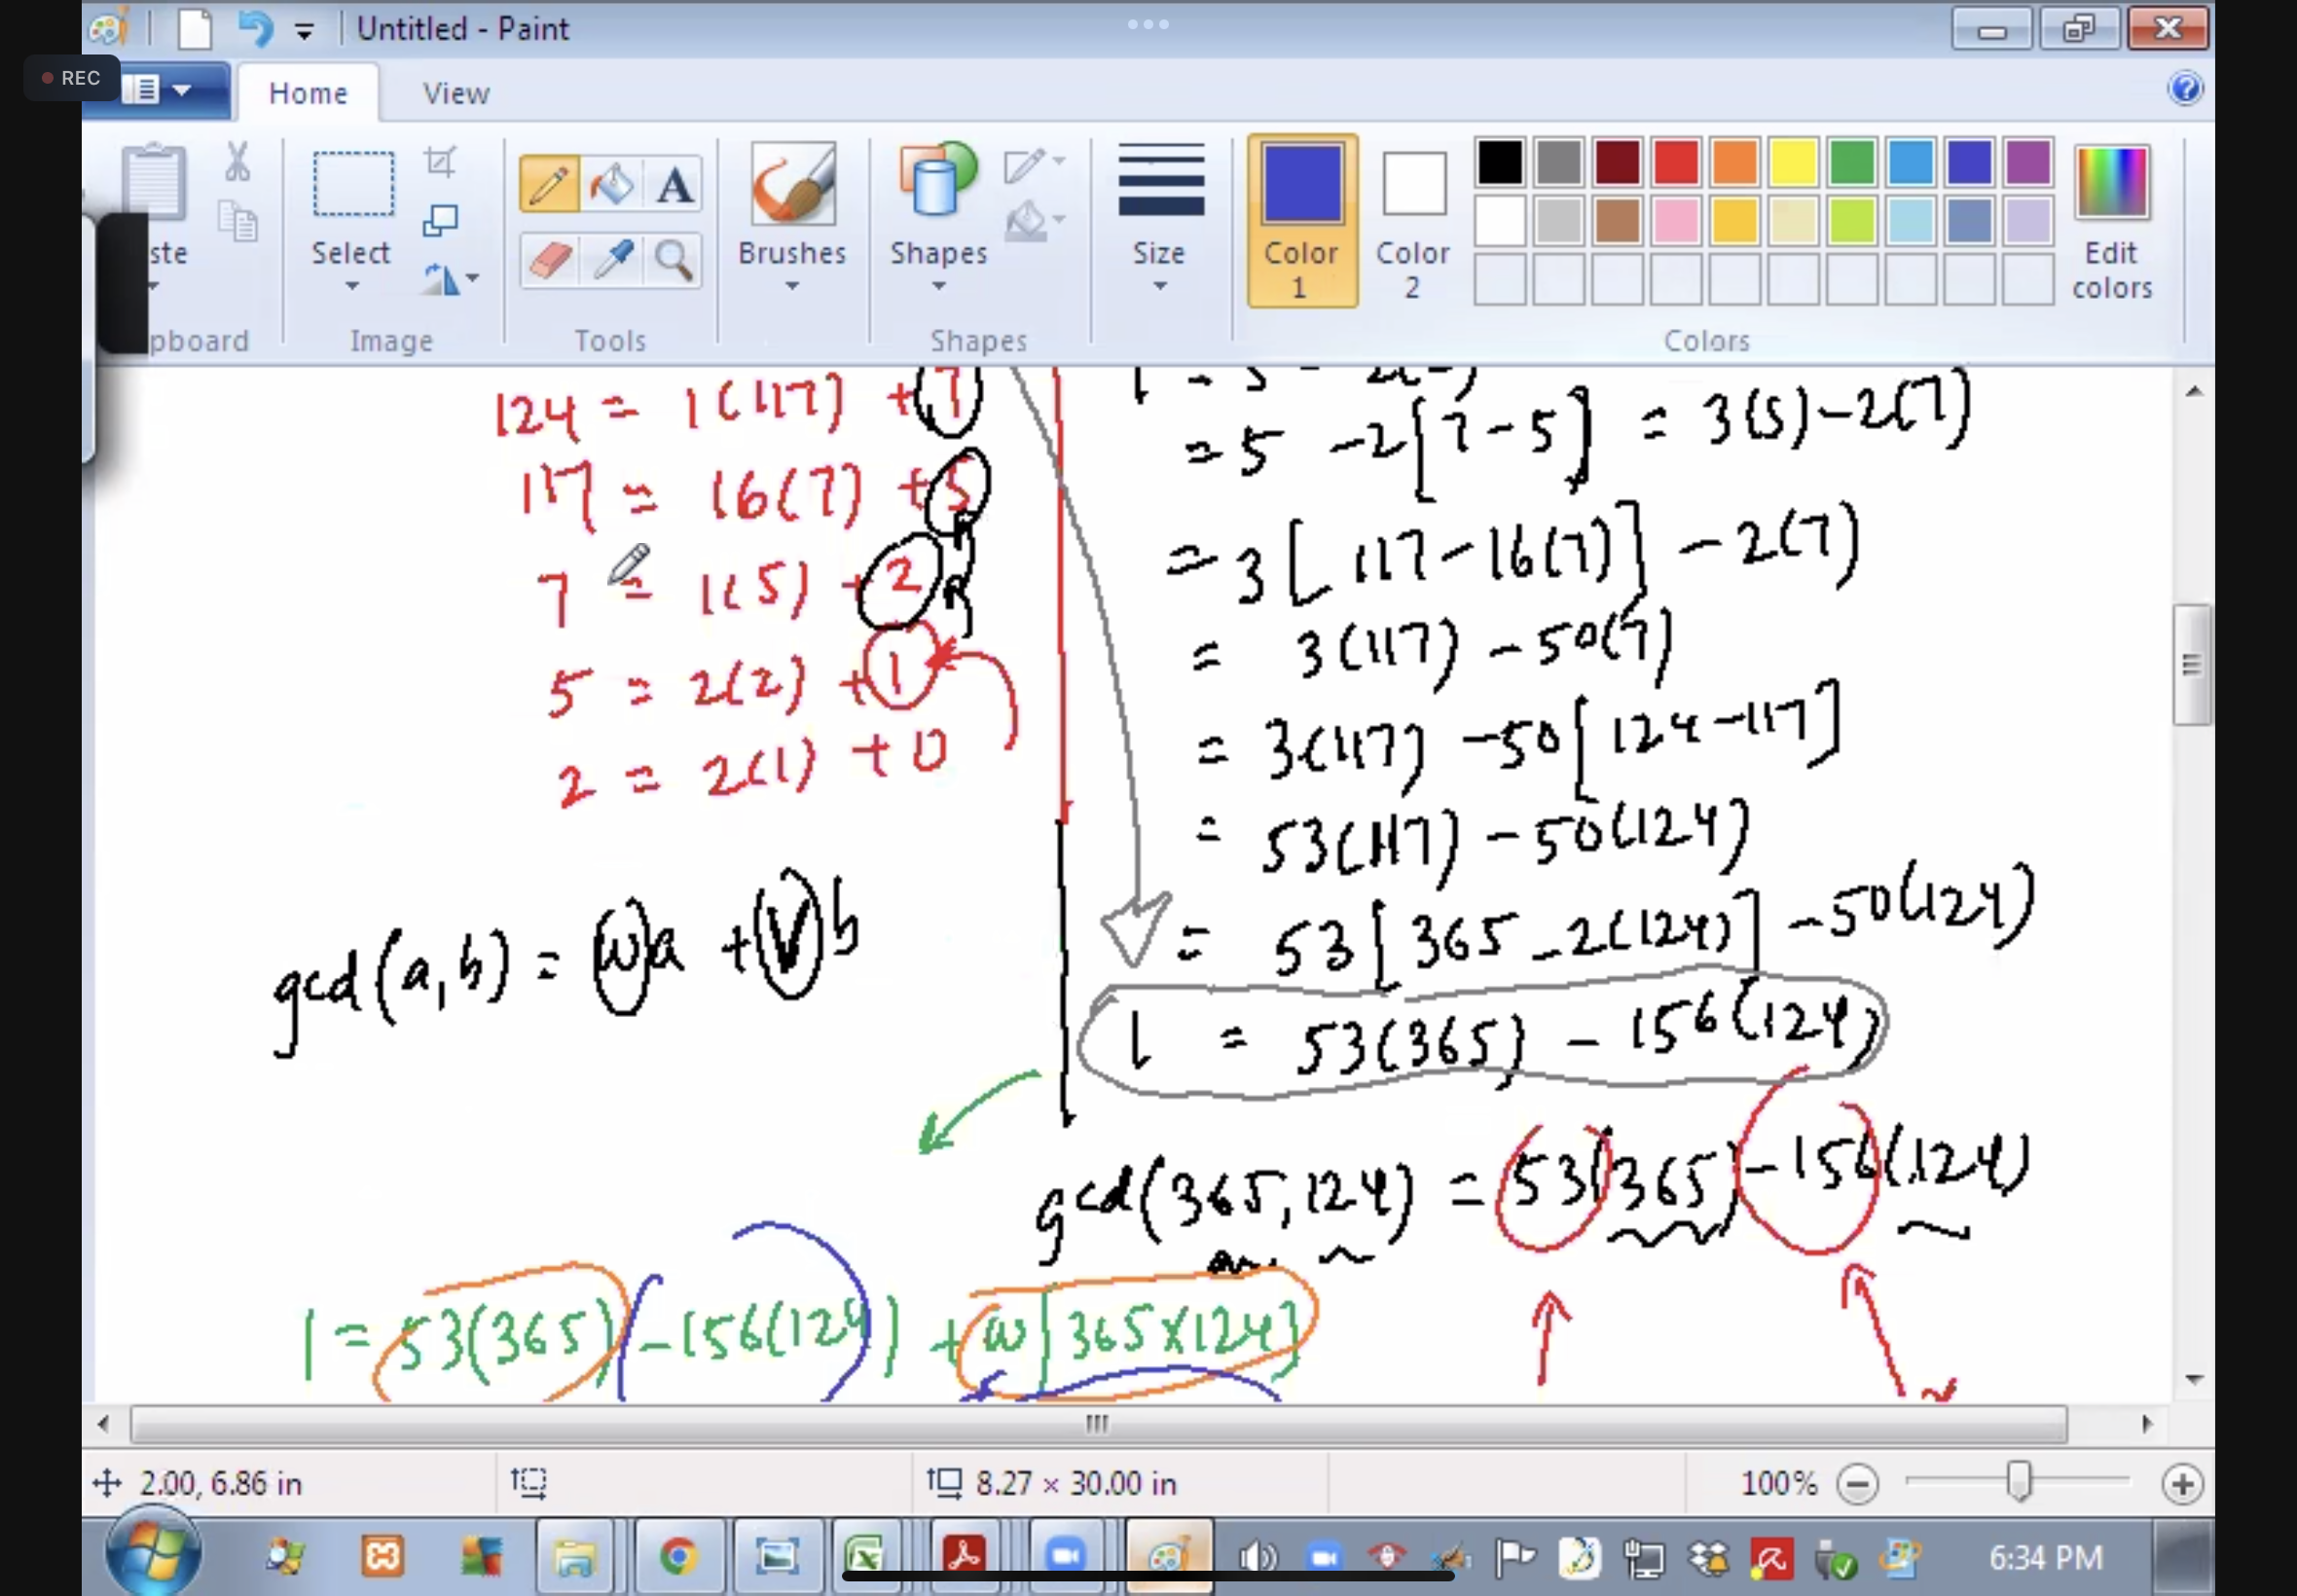 Untitled - Paint
REC
Home View
ste
Select
Brushes
Shapes
Size
Color 1
Color 2
Edit colors
pboard
Image
Tools
Shapes
Colors
124 = 1(117) + 7
117 = 16(7) + 5
7 = 1(5) + 2
5 = 2(2) + 1
2 = 2(1) + 0
gcd(a,b) = wa + Vb
= 5 - 2[7-5] = 3(5) - 2(7)
= 3[117 - 16(7)] - 2(7)
= 3(117) - 50(7)
= 3(117) - 50[124 - 117]
= 53(117) - 50(124)
= 53[365 - 2(124)] - 50(124)
1 = 53(365) - 156(124)
gcd(365, 124) = 53(365) - 156(124)
1 = 53(365) (-156(124)) + w[365×124]
2.00, 6.86 in
8.27 × 30.00 in
100%
6:34 PM